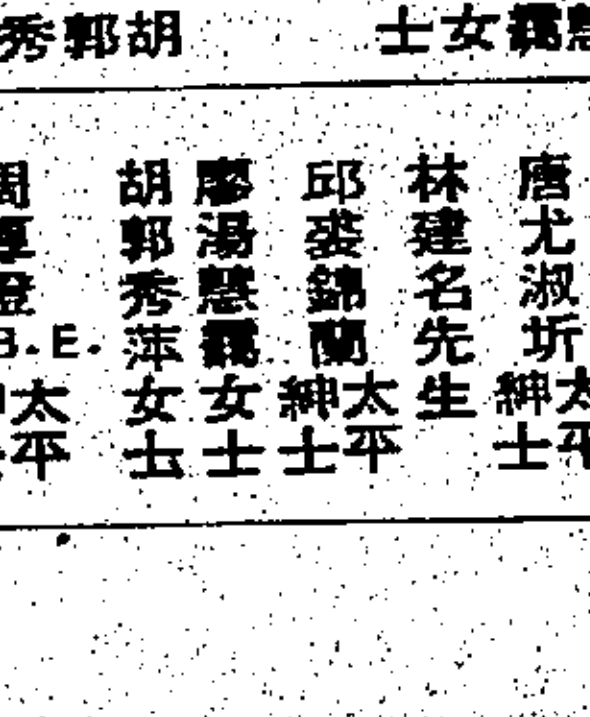 士女靄慧
胡郭秀
唐尤淑圻太平紳士
林建名先生
邱裘錦蘭太平紳士
廖湯慧靄女士
胡郭秀萍女士
周 B.E.太平紳士